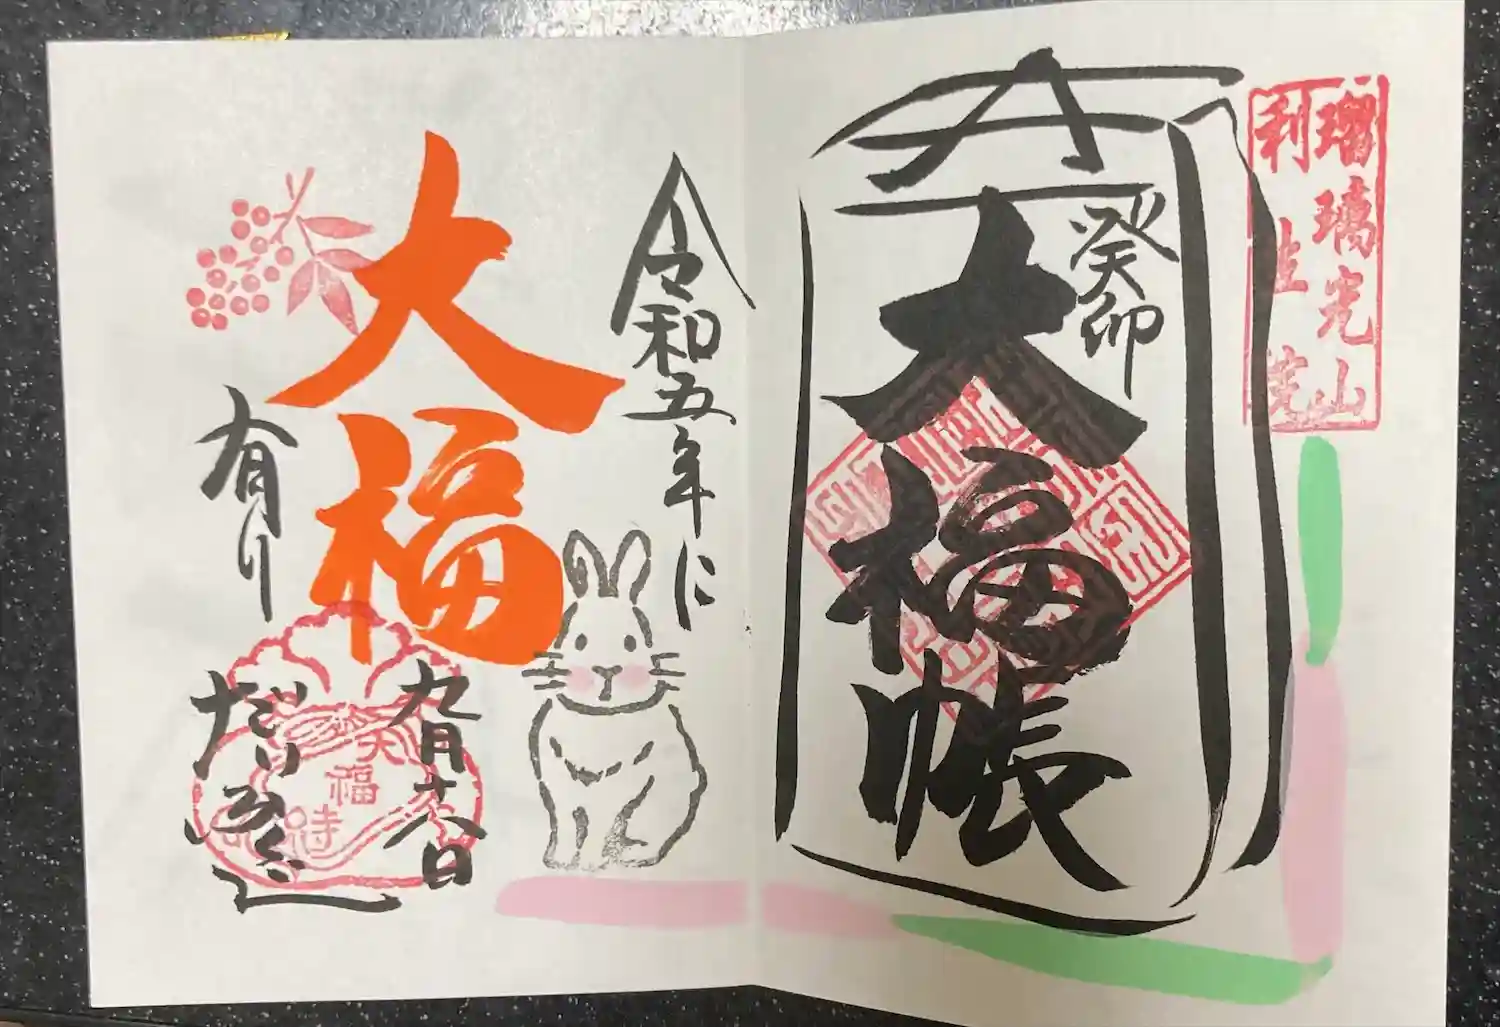 瑠璃光山
利生院
癸卯
大福帳
令和五年に
大福
有り
九月十八日
だいふくじ
大福